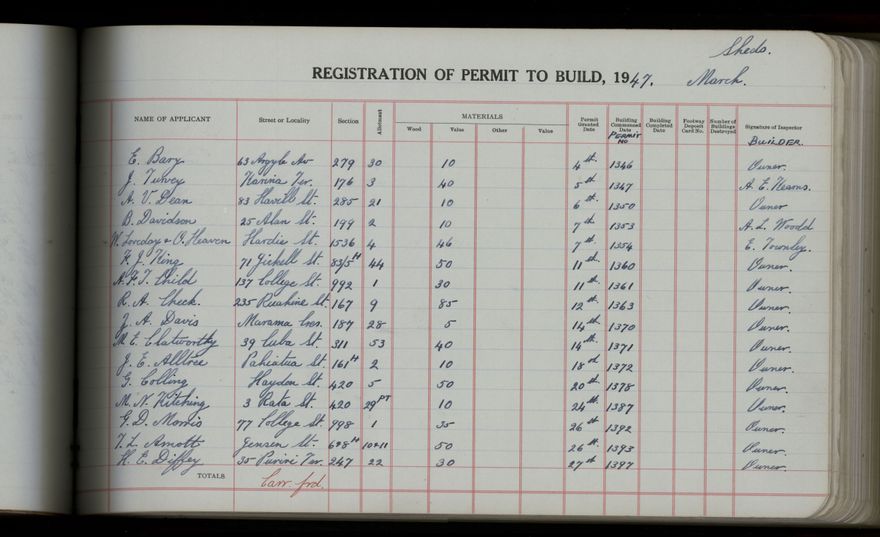 Sheds.
REGISTRATION OF PERMIT TO BUILD, 1947. March.
NAME OF APPLICANT Street or Locality Section Allotment MATERIALS Wood Value Other Value Permit Granted Date Building Commenced Date PERMIT NO Building Completed Date Footway Deposit Card No. Number of Buildings Destroyed Signature of Inspector BUILDER.
E. Bary 63 Argyle Av 279 30 10 4th. 1346 Owner.
J. Turvey Kanina Ter. 176 3 40 5th 1347 A. E. Kearns.
A. V. Dean 83 Havill St. 285 21 10 6th 1350 Owner
B. Davidson 25 Alan St. 199 2 10 7th 1353 A. L. Woodd
W. Loveday & O. Heaven Hardie St. 1536 4 46 7th. 1354 E. Townley.
F. J. King 71 Jickell St. 83/5H 44 50 11th. 1360 Owner.
A. F. T. Child 137 College St. 992 1 30 11th. 1361 Owner.
R. A. Cheek. 235 Ruahine St. 167 9 85 12th 1363 Owner.
J. A. Davis Marama Cres. 187 28 5 14th. 1370 Owner.
M. E. Clatworthy 39 Cuba St. 311 53 40 14th. 1371 Owner.
J. E. Alltree Pahiatua St. 161H 2 10 18th 1372 Owner.
G. Colling Haydon St. 420 5 50 20th 1378 Owner.
M. N. Kitching 3 Rata St. 420 29PT 10 24th 1387 Owner.
G. D. Morris 77 College St. 998 1 35 26th 1392 Owner.
T. L. Amott Jensen St. 10&11 50 26th. 1393 Owner.
H. E. Diffey 35 Puriri Ter. 247 22 30 27th 1397 Owner.
TOTALS Carr. frd.